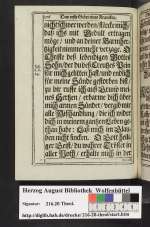 nicht schwer werden/ sondern
daß ich mit Gedult ertragen
möge/ und an deiner Barmher-
tzigkeit nimmermehr verzage. O
Christe des lebendigen Gottes
Sohn/ der du das Creutzes Pein
für mich gelitten hast/ und endlich
für meine Sünde gestorben bist/
zu dir ruffe ich auß Grund mei-
nes Hertzen/ erbarme dich über
mich armen Sünder/ vergib mir
alle Mißhandlung/ die ich wider
dich in meinem gantzen Leben ge-
than habe/ laß mich im Glau-
ben nicht sincken. O Gott heili-
ger Geist/ du wahrer Tröster in
aller Noth/ erhalte mich in der
Herzog August Bibliothek Wolfenbüttel
Signatur: 216.20 Theol.
http://diglib.hab.de/drucke/216-20-theol/start.htm